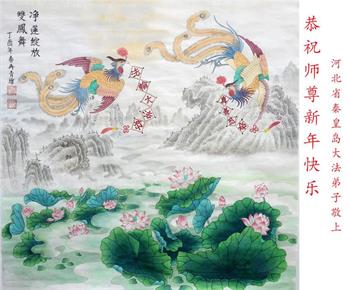 净莲绽放
雙鳳舞
丁酉年春
恭祝师尊新年快乐
河北省秦皇岛大法弟子敬上